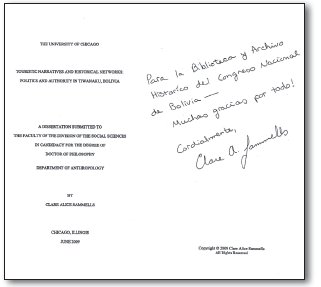 THE UNIVERSITY OF CHICAGO
TOURISTIC NARRATIVES AND HISTORICAL NETWORKS:
POLITICS AND AUTHORITY IN TIWANAKU, BOLIVIA
A DISSERTATION SUBMITTED TO
THE FACULTY OF THE DIVISION OF THE SOCIAL SCIENCES
IN CANDIDACY FOR THE DEGREE OF
DOCTOR OF PHILOSOPHY
DEPARTMENT OF ANTHROPOLOGY
BY
CLARE ALICE SAMMELLS
CHICAGO, ILLINOIS
JUNE 2009
Para la Biblioteca y Archivo
Histórico del Congreso Nacional
de Bolivia —
Muchas gracias por todo!
Cordialmente,
Clare A. Sammells
Copyright © 2009 Clare Alice Sammells
All Rights Reserved